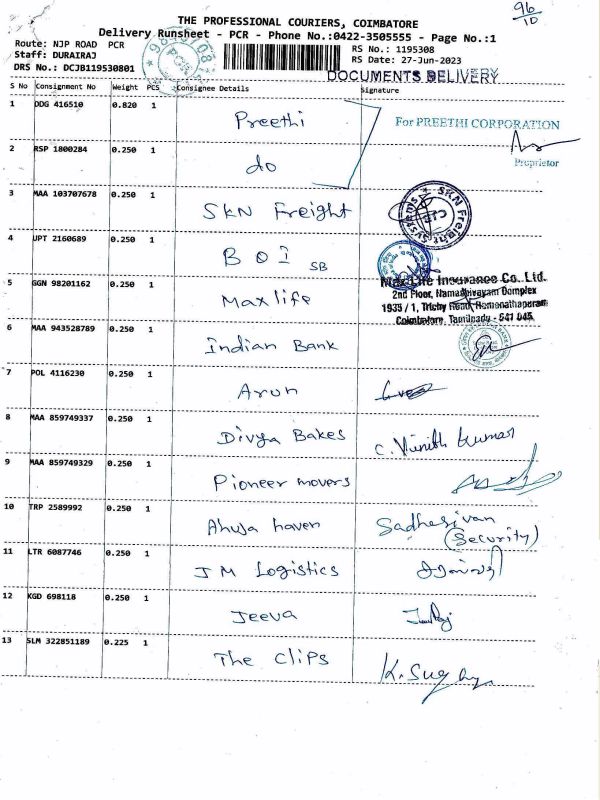 96
10
THE PROFESSIONAL COURIERS, COIMBATORE
Delivery Runsheet - PCR - Phone No.:0422-3505555 - Page No.:1
Route: NJP ROAD PCR
RS No.: 1195308
Staff: DURAIRAJ
RS Date: 27-Jun-2023
DRS No.: DCJB119530801
DOCUMENTS DELIVERY
S No Consignment No Weight PCS Consignee Details Signature
1 DDG 416510 0.820 1 Preethi
For PREETHI CORPORATION
Proprietor
2 RSP 1800284 0.250 1 do
3 MAA 103707678 0.250 1 SKN Freight
SKN Freight Systems
4 JPT 2160689 0.250 1 BOI SB
5 GGN 98201162 0.250 1 Maxlife
Max Life Insurance Co. Ltd.
2nd Floor, Namashivayam Complex
1935 / 1, Trichy Road, Ramanathapuram
Coimbatore, Tamilnadu - 641 045.
6 MAA 943528789 0.250 1 Indian Bank
7 POL 4116230 0.250 1 Arun
8 MAA 859749337 0.250 1 Divya Bakes C. Vinith kumar
9 MAA 859749329 0.250 1 Pioneer movers
10 TRP 2589992 0.250 1 Ahuja haven Sadhasivan
(Security)
11 LTR 6087746 0.250 1 JM Logistics
12 KGD 698118 0.250 1 Jeeva
13 SLM 322851189 0.225 1 The Clips